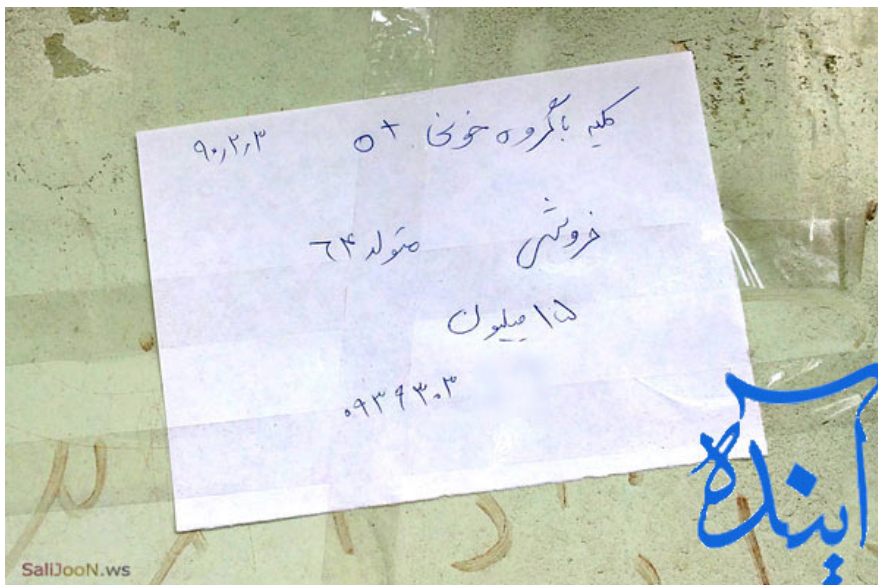 کلیه با گروه خونی O+ ۹۰,۲,۳
فروشی متولد ۶۴
۱۵ میلیون
۰۹۳۶۹۳۰۳
آینده
SaliJooN.ws